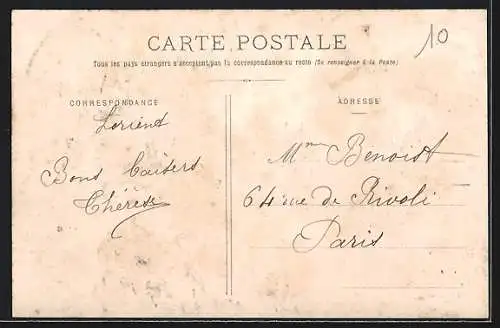 10
CARTE POSTALE
Tous les pays étrangers n'acceptent pas la correspondance au recto (Se renseigner à la Poste)
CORRESPONDANCE
Lorient
Bons baisers
Thérèse
ADRESSE
Mme Benoist
64 rue de Rivoli
Paris